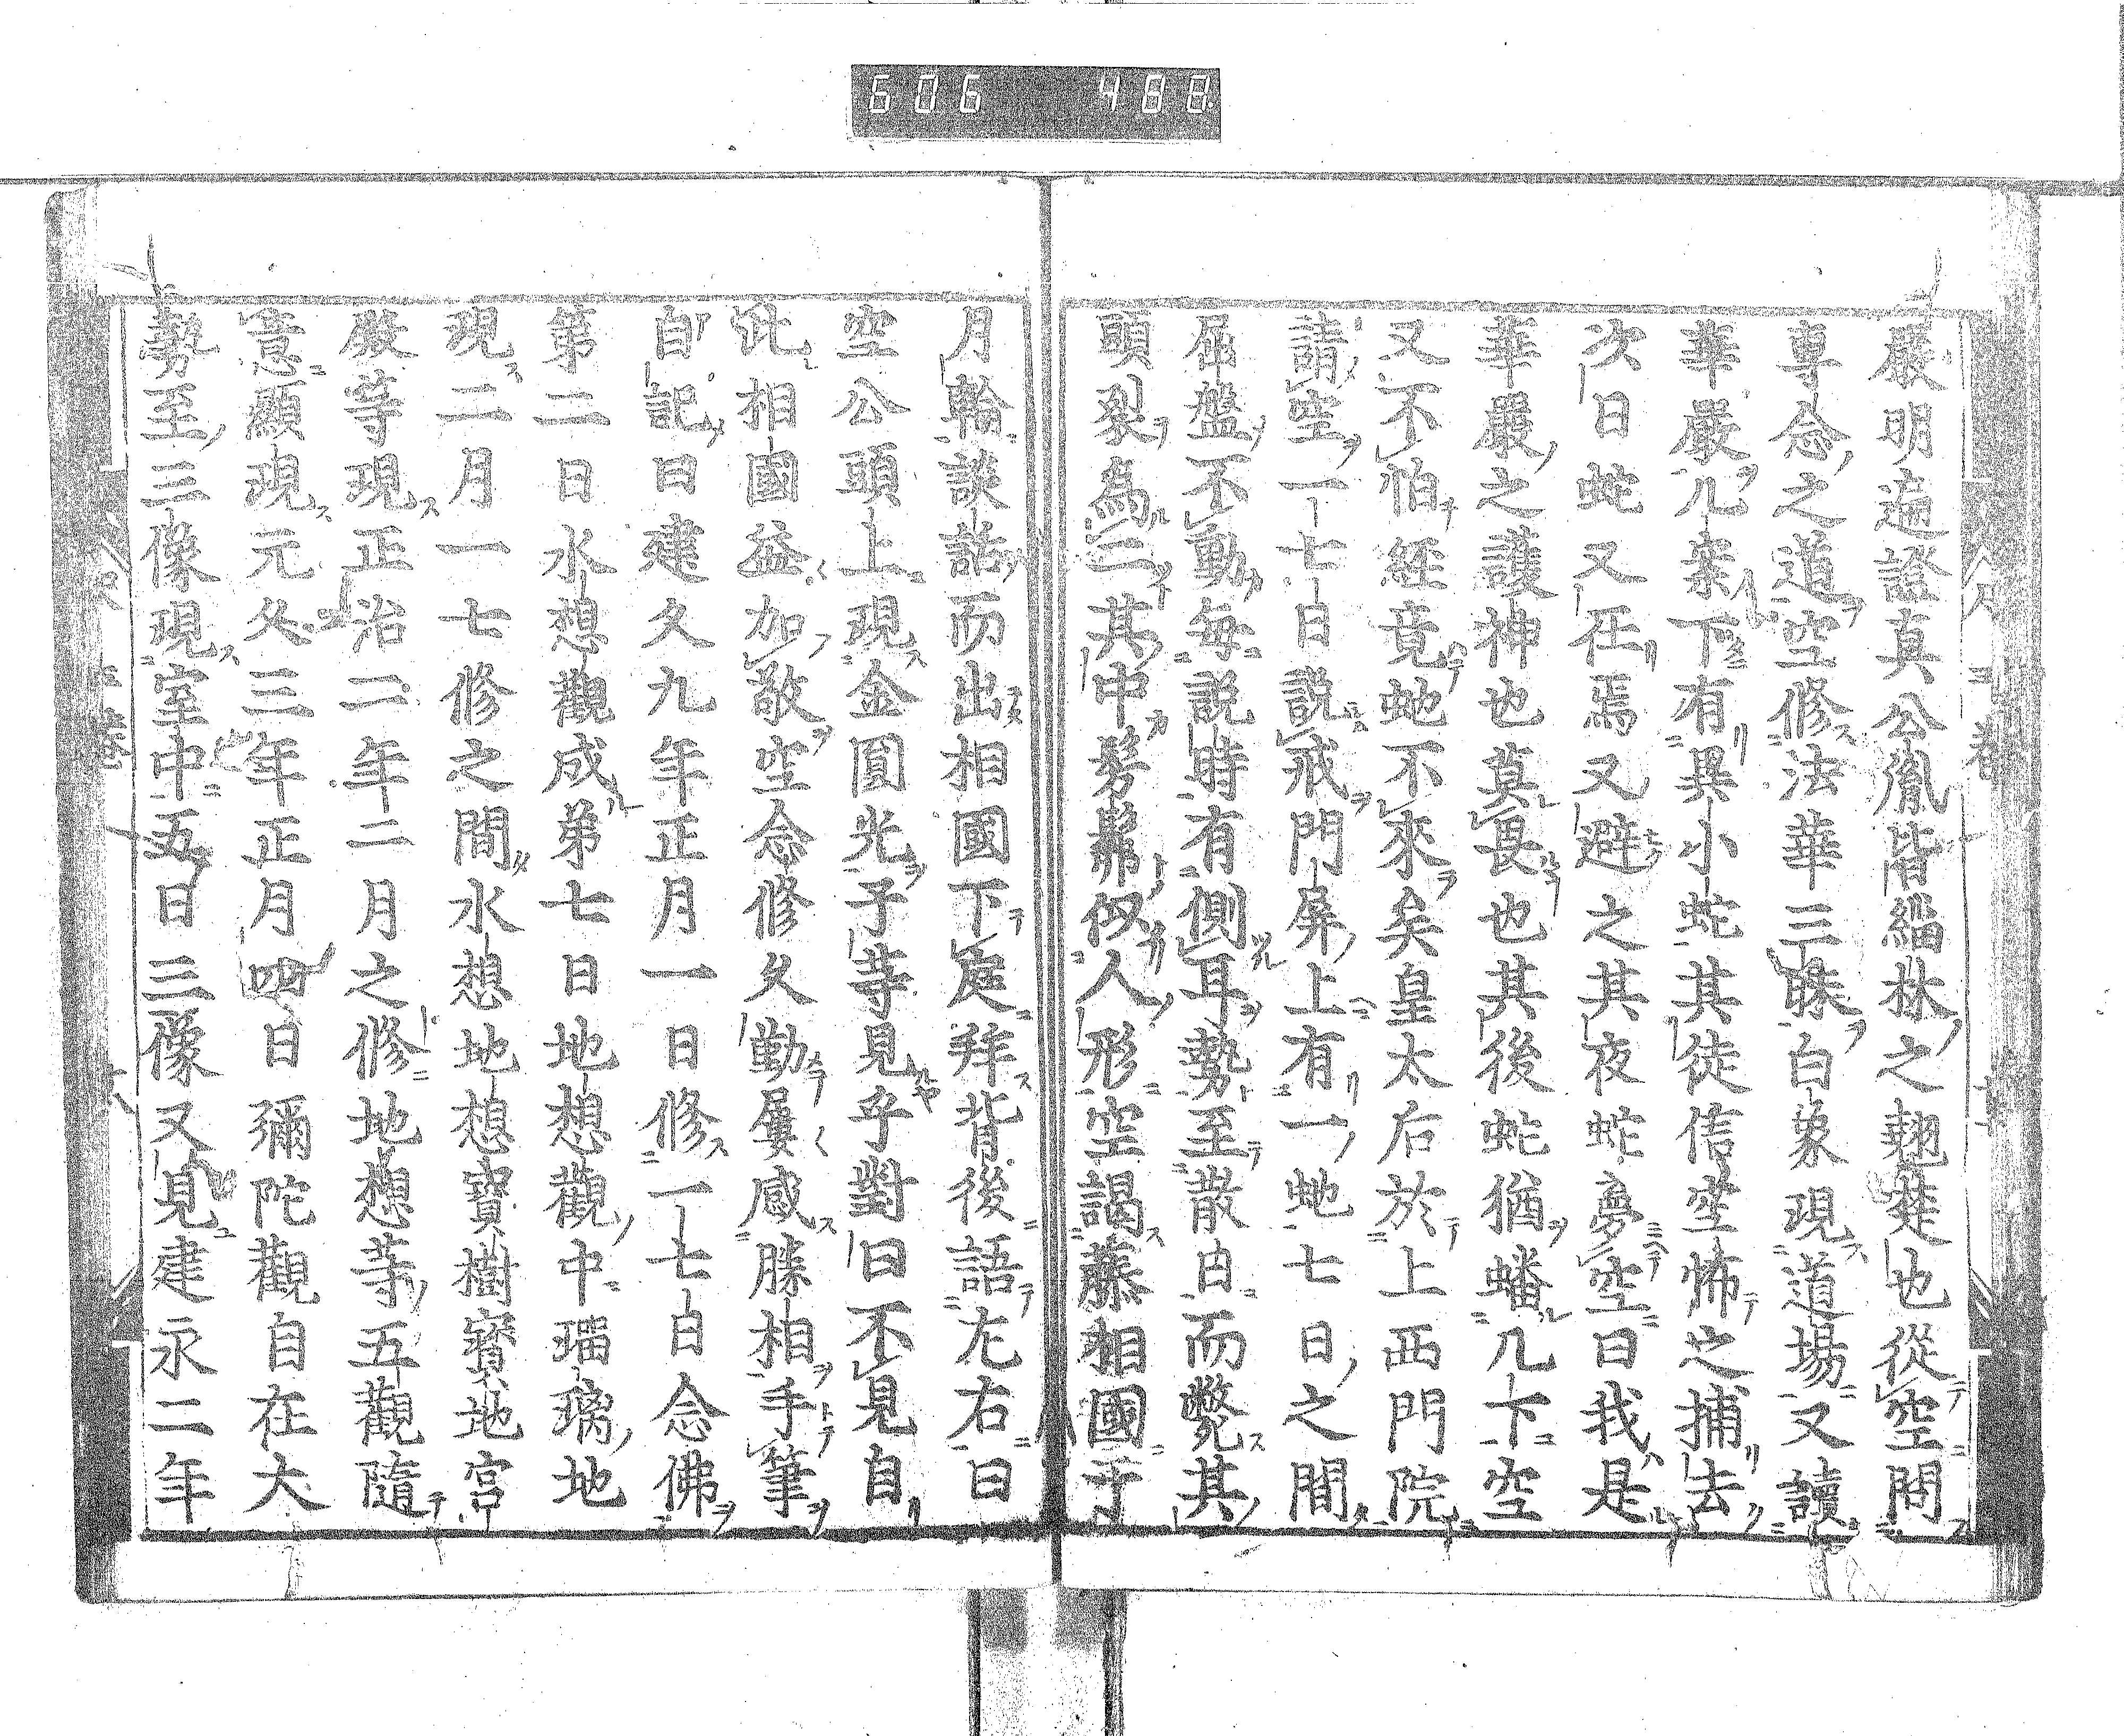 606 488
嚴明遍證真公胤皆緇林之翹楚也從空問
專念之道空修法華三昧白象現道場又讀
華嚴几案下有異小蛇其徒信空怖之捕去
次日蛇又在焉又避之其夜蛇夢空曰我是
華嚴之護神也莫畏也其後蛇猶蟠几下空
又不怕經竟虵不來矣皇太后於上西門院
請空一七日說戒門屏上有一虵七日之間
屈盤不動每說時有側耳勢至散日而斃其
頭裂為二其中髣髴似人形空謁藤相國于
月輪談話而出相國下庭拜背後語左右曰
空公頭上現金圓光子等見乎對曰不見自
此相國益加敬空念修久勤屢感勝相手筆
自記曰建久九年正月一日修一七日念佛
第二日水想觀成第七日地想觀中瑠璃地
現二月一七修之間水想地想寶樹寶地宮
殿等現正治二年二月之修地想等五觀隨
意顯現元久三年正月四日彌陀觀自在大
勢至三像現室中五日三像又見建永二年